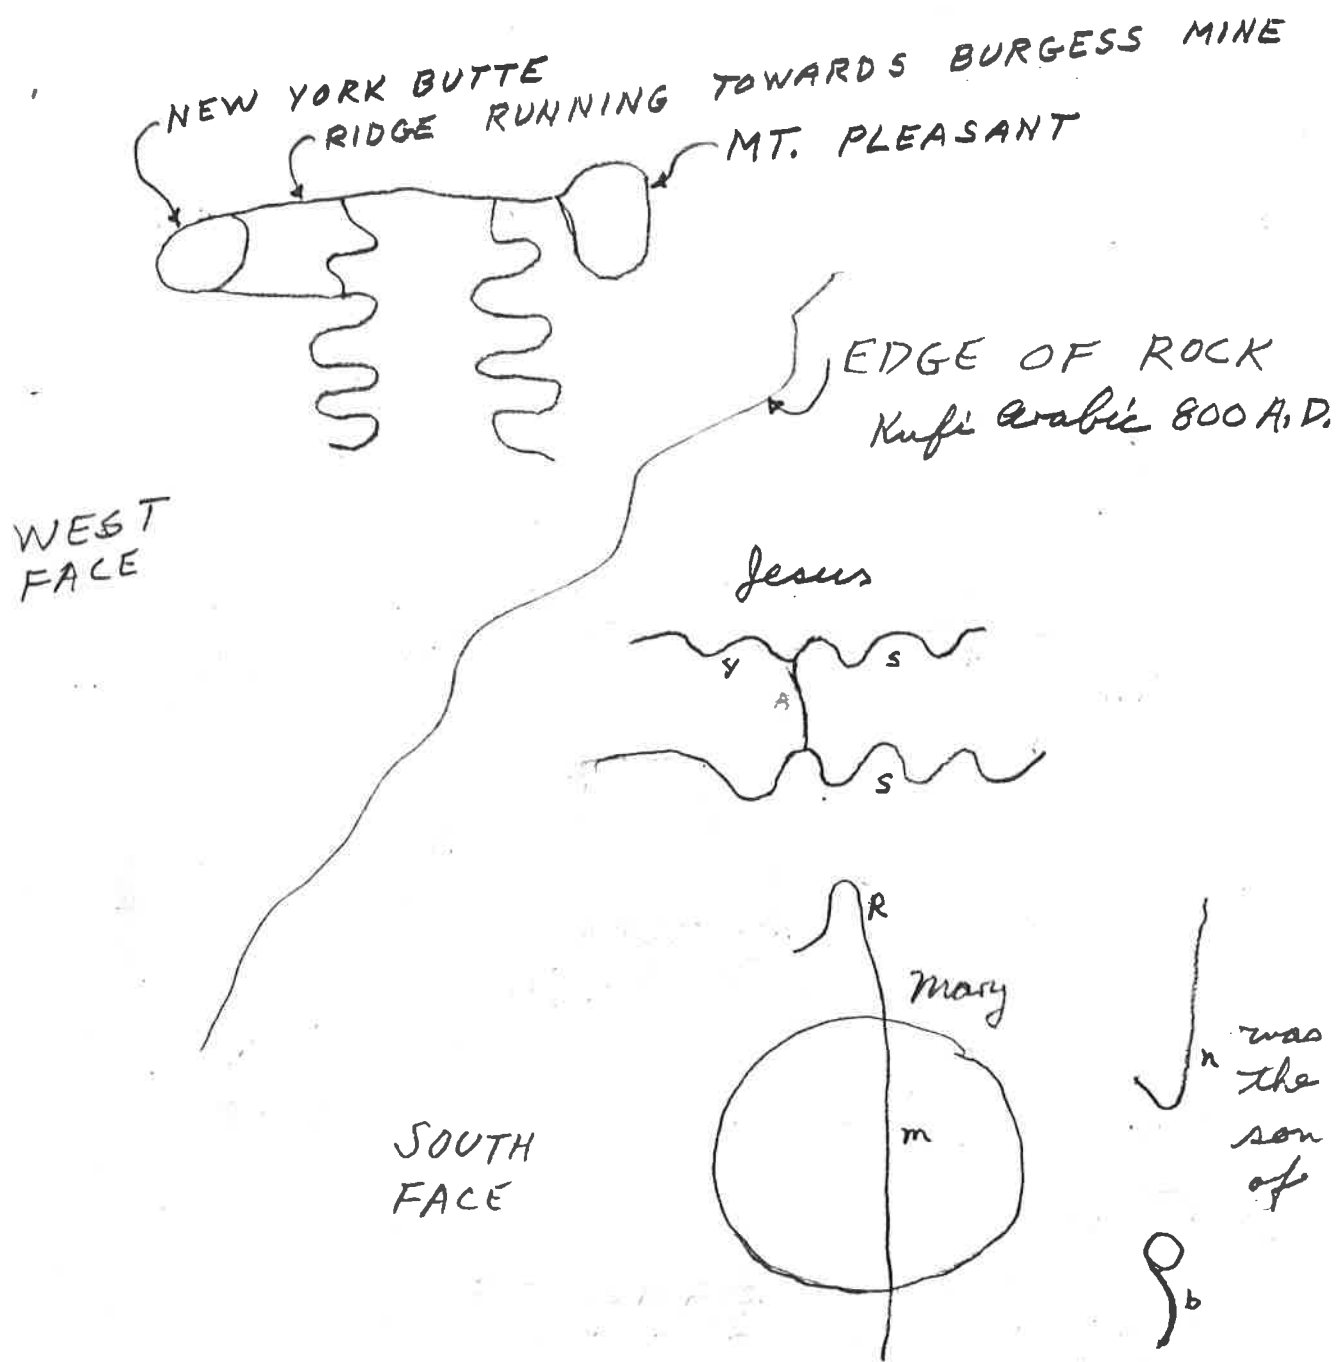 NEW YORK BUTTE
RIDGE RUNNING TOWARDS BURGESS MINE
MT. PLEASANT
EDGE OF ROCK
Kufi Arabic 800 A.D.
WEST
FACE
Jesus
y
s
A
s
R
Mary
n
was
the
son
of
m
SOUTH
FACE
b